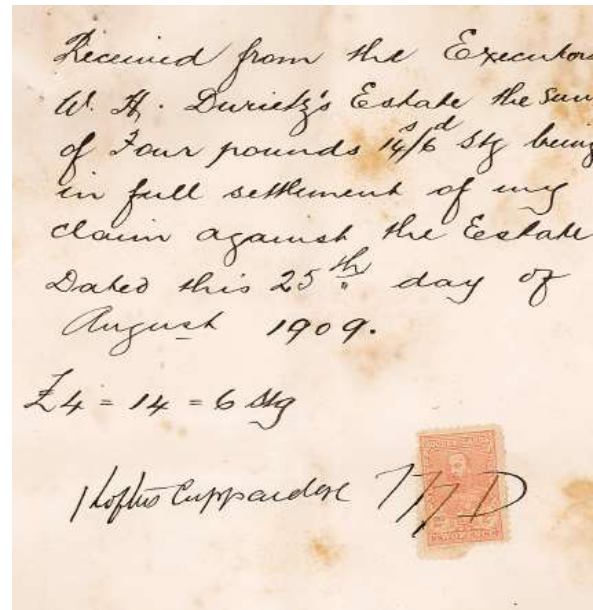 Received from the Executors
W. H. Durietz's Estate the sum
of Four pounds 14s/6d Stg being
in full settlement of my
claim against the Estate
Dated this 25th day of
August 1909.
£4 = 14 = 6 Stg
Loftus MD